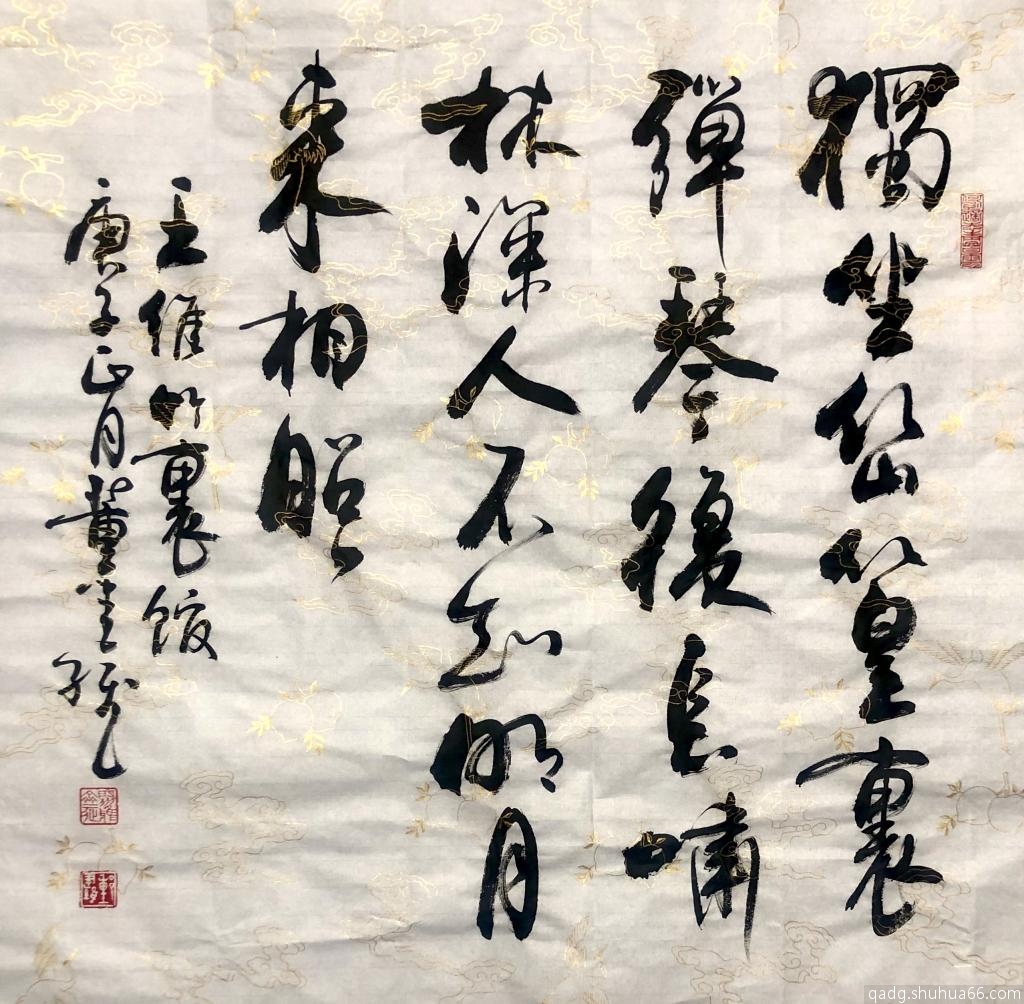 獨坐幽篁裏
彈琴復長嘯
林深人不知明月
来相照
王維竹裏館
庚子正月董
qadg.shuhua66.com